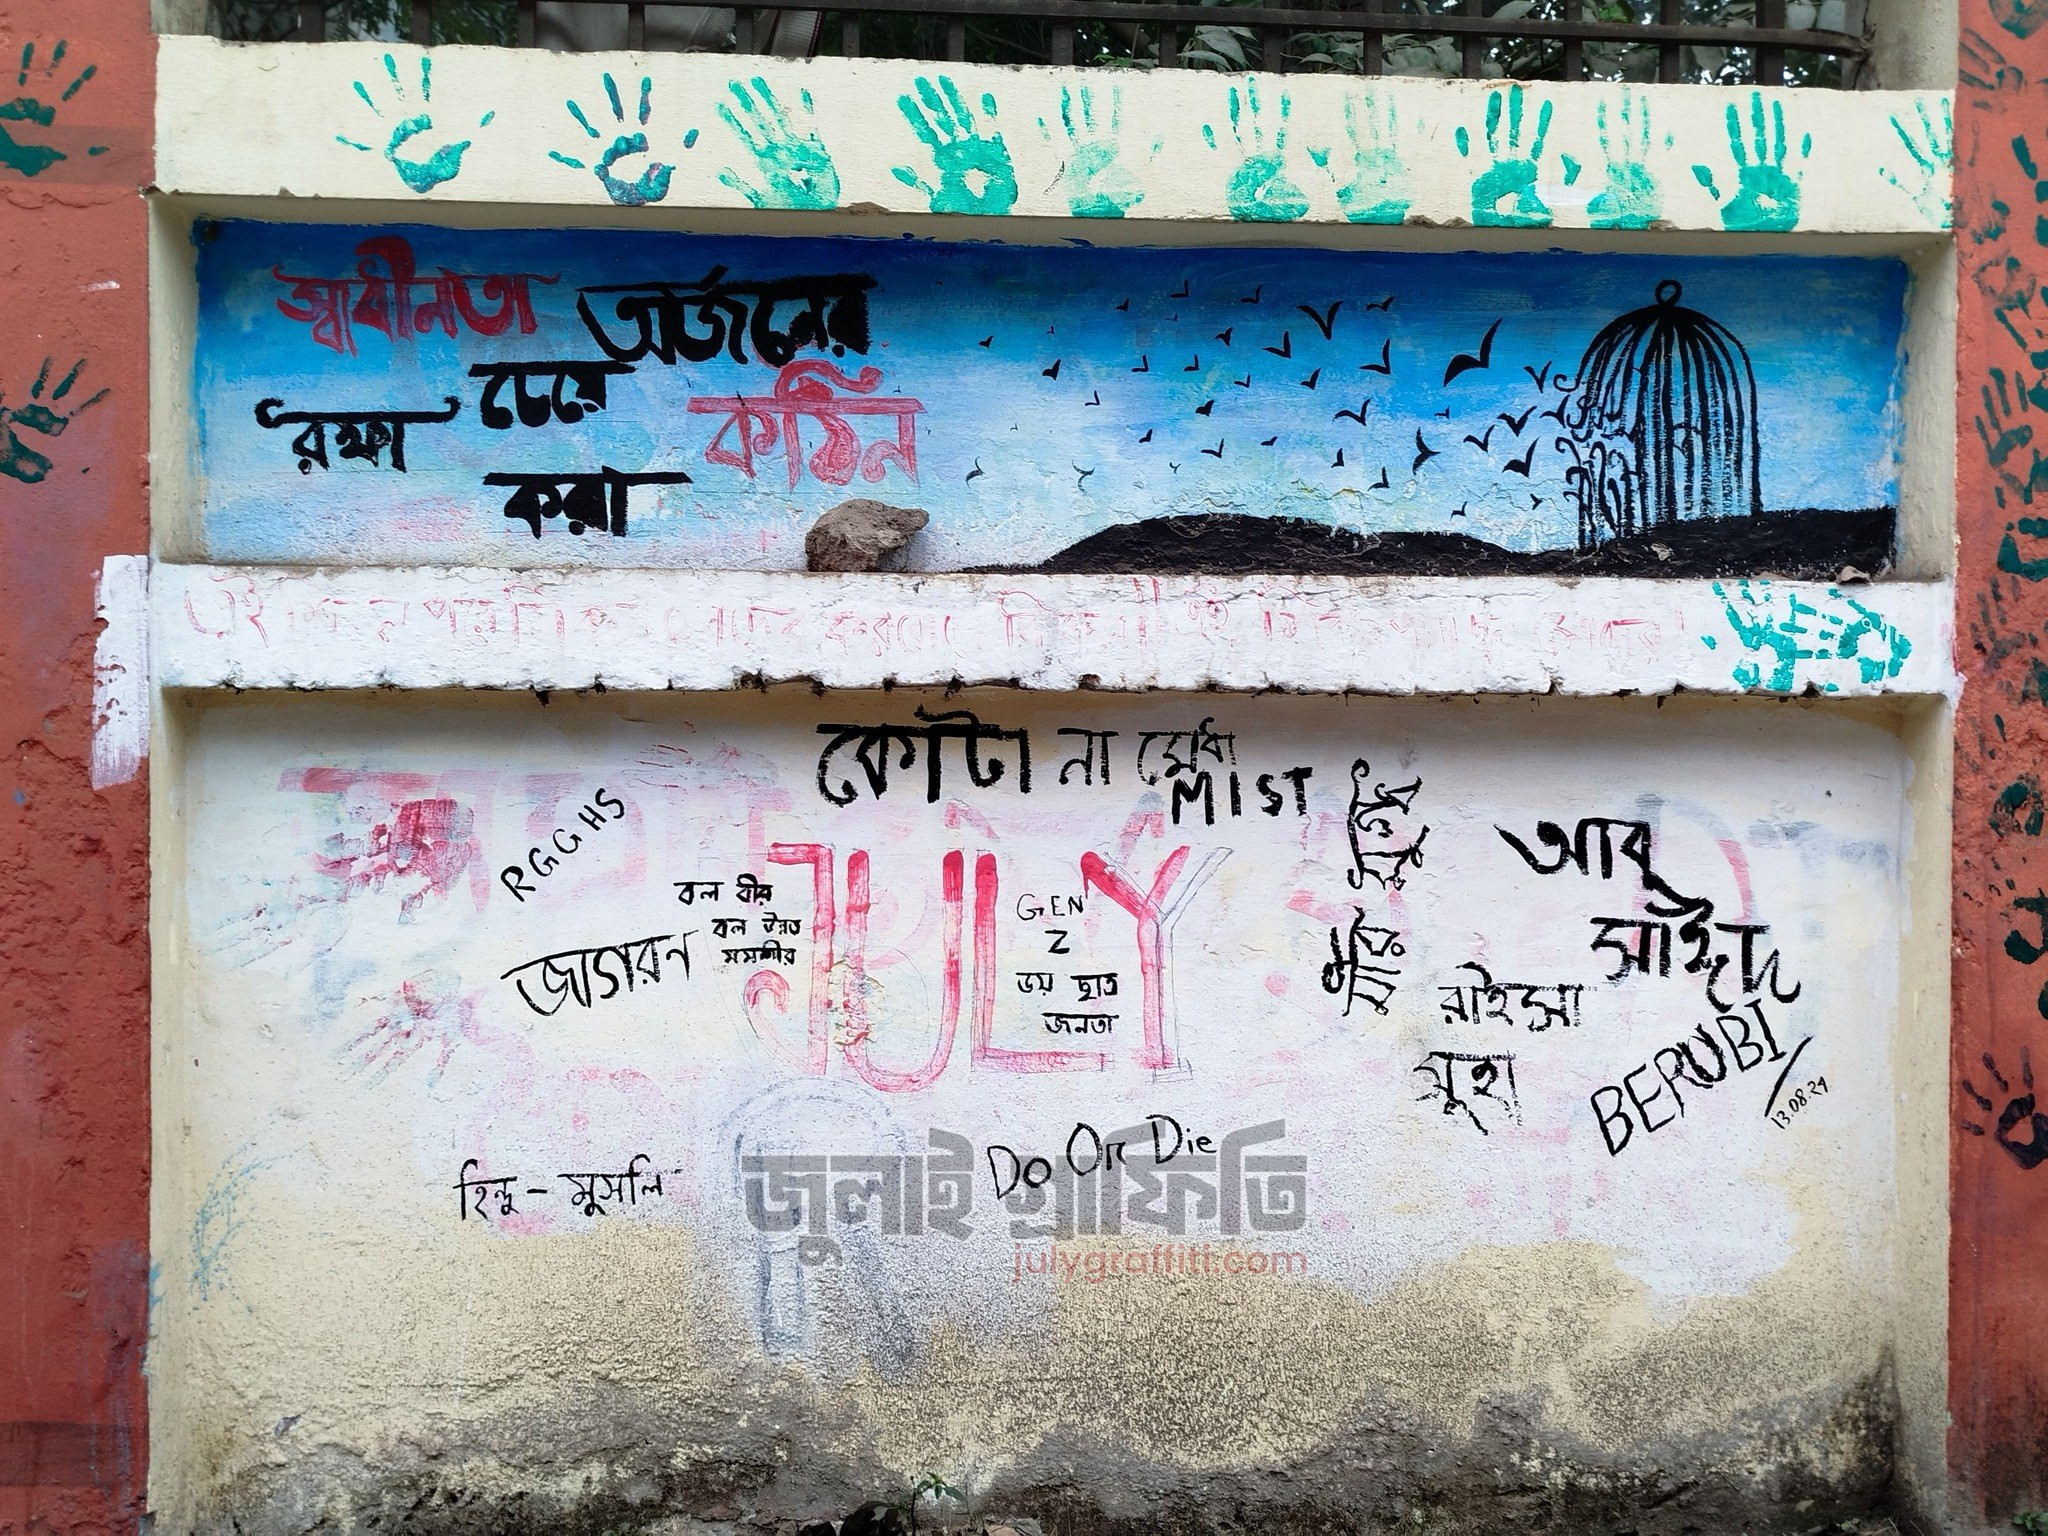 স্বাধীনতা অর্জনের
চেয়ে
রক্ষা
করা
কঠিন
এই
কোটা না মেধা
RGGHS
বল বীর
বল উন্নত
মমশীর
জাগরণ
JULY
GEN
Z
জয় ছাত্র
জনতা
আবু
সাঈদ
রাইসা
মুহা
BERUBI
13.08.24
হিন্দু - মুসলি
Do Or Die
জুলাই গ্রাফিতি
julygraffiti.com